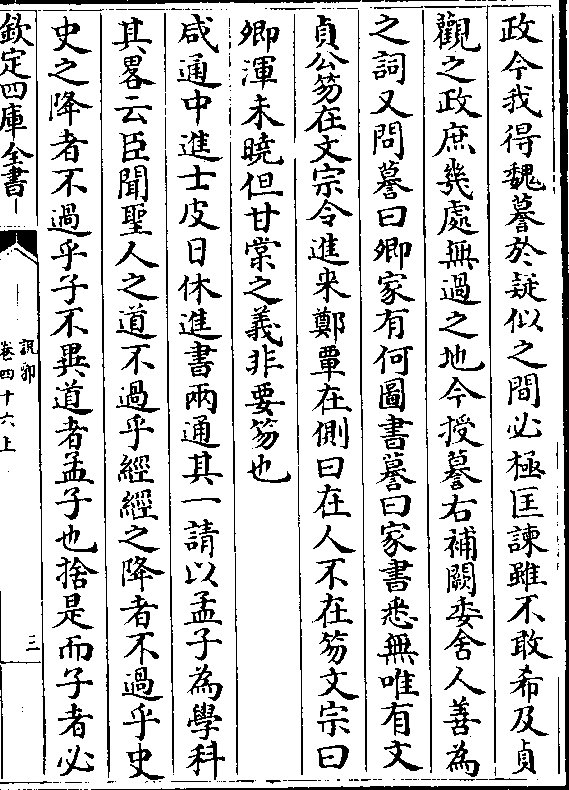 政今我得魏謩於疑似之間必極匡諫雖不敢希及貞
觀之政庶幾處無過之地今授謩右補闕委舍人善為
之詞又問謩曰卿家有何圖書謩曰家書悉無唯有文
貞公笏在文宗令進来鄭覃在側曰在人不在笏文宗曰
卿渾未曉但甘棠之義非要笏也
咸通中進士皮日休進書兩通其一請以孟子為學科
其畧云臣聞聖人之道不過乎經經之降者不過乎史
史之降者不過乎子不異道者孟子也捨是而子者必
欽定四庫全書
說郛
卷四十六上
三